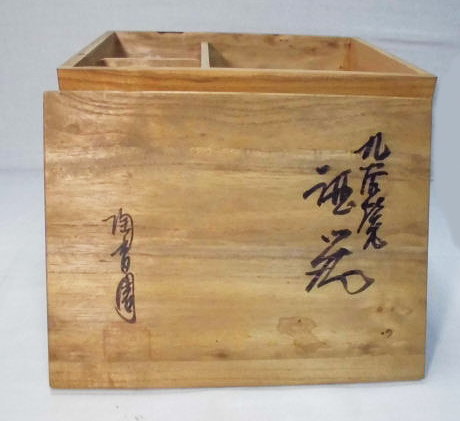 九谷焼
酒器
陶吉園